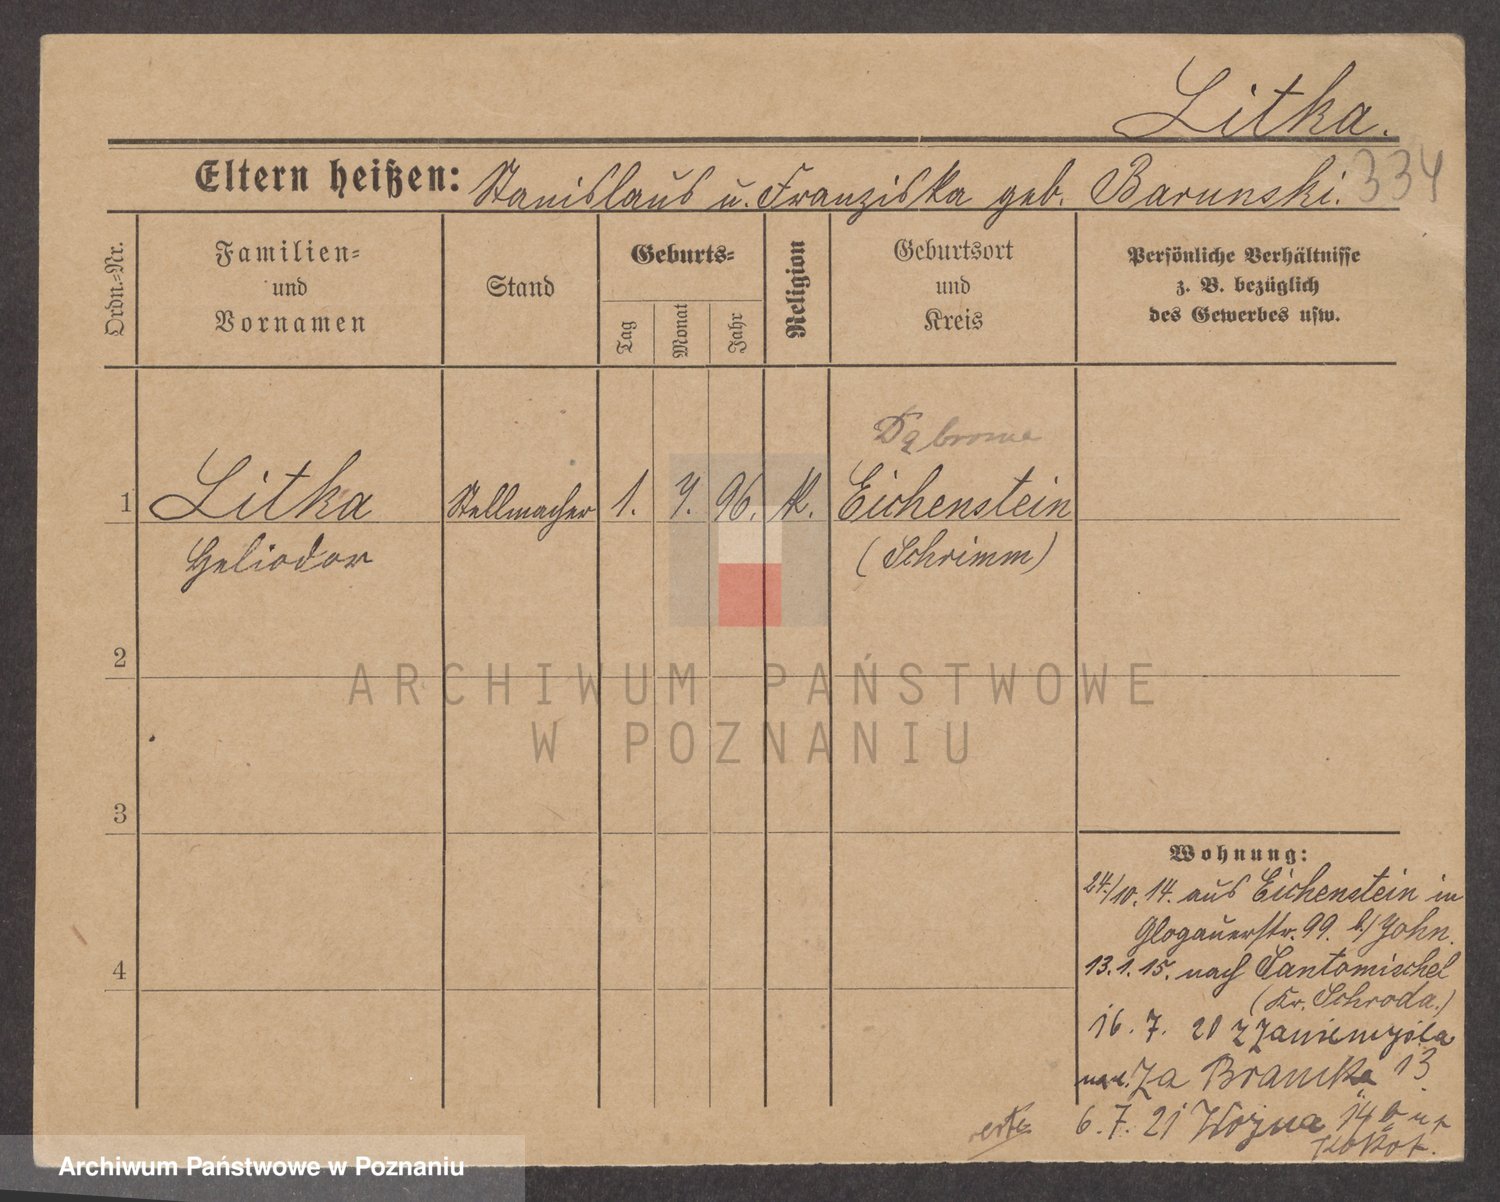 Litka.
334
Eltern heißen: Stanislaus u. Franziska geb. Barunski.
Ordn.-Nr.
Familien-
und
Vornamen
Stand
Geburts-
Tag
Monat
Jahr
Religion
Geburtsort
und
Kreis
Persönliche Verhältnisse
z. B. bezüglich
des Gewerbes usw.
Dąbrowa
1 Litka Stellmacher 1. 7. 96. K. Eichenstein
Heliodor (Schrimm)
2
3
4
Wohnung:
24./10. 14. aus Eichenstein in
Glogauerstr. 99. b/ John.
13. 1. 15. nach Santomischel
(Kr. Schroda.)
16. 7. 20 z Zaniemyśla
na Za Bramką 13
6. 7. 21 14
ARCHIWUM PAŃSTWOWE
W POZNANIU
Archiwum Państwowe w Poznaniu